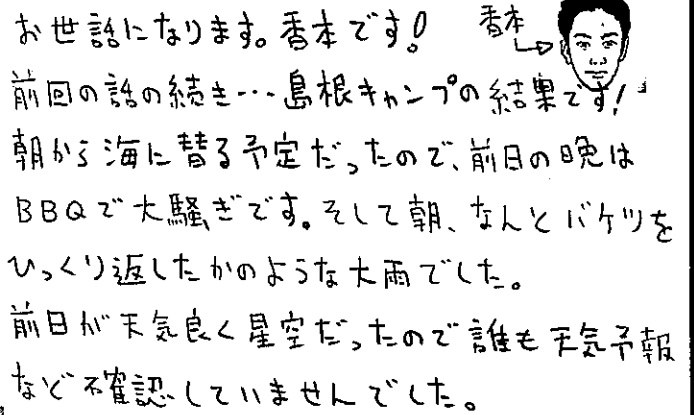 お世話になります。香本です! 香本
前回の話の続き…島根キャンプの結果です!
朝から海に替る予定だったので、前日の晩は
BBQで大騒ぎです。そして朝、なんとバケツを
ひっくり返したかのような大雨でした。
前日が天気良く星空だったので誰も天気予報
など不確認していませんでした。